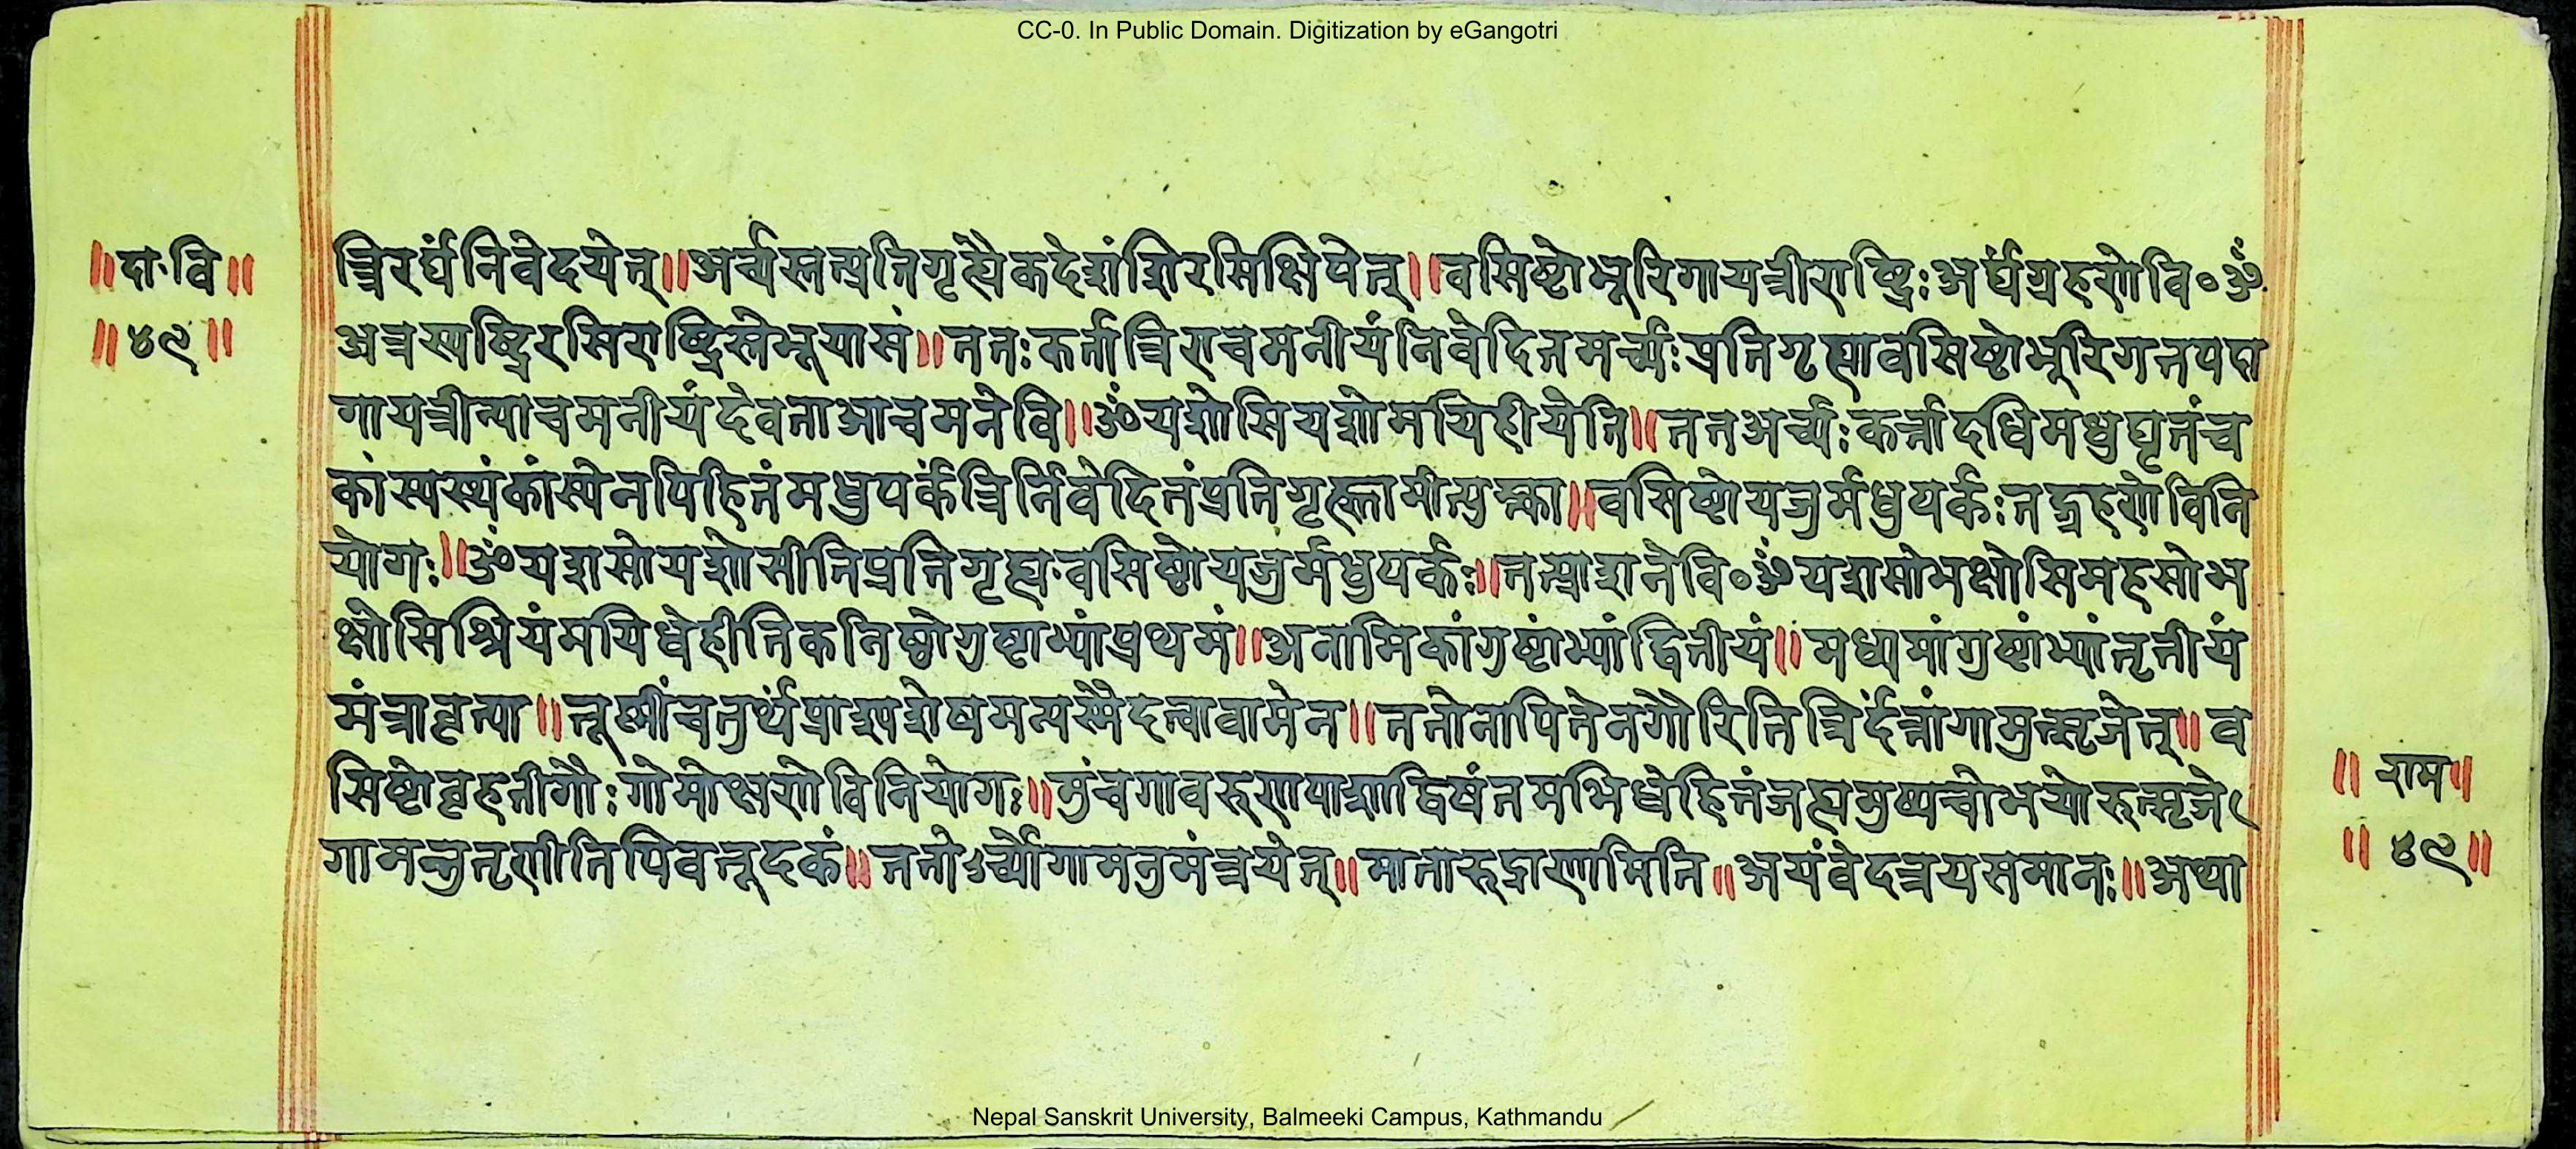 CC-0. In Public Domain. Digitization by eGangotri
॥दा·वि॥
॥४९॥
त्रिरर्घंनिवेदयेत्॥अर्च्यस्तत्प्रतिगृह्यैकदेशंशिरसिक्षिपेत्॥वसिष्टोभूरिगायत्रीराष्ट्रिःअर्घंग्रहणेवि०ॐ
अन्नस्यष्ट्रिरसिराष्ट्रिस्तेभूयासं॥ततःकर्तात्रिराचमनीयंनिवेदितमर्च्यःप्रतिगृह्यावसिष्टोभूरिगतयदा
गायत्रीत्याचमनीयंदेवताआचमनेवि॥ॐयशोसियशोमयिहीयेति॥ततअर्च्यःकर्त्तादधिमधुघृतंच
कांस्यस्थंकांस्येनपिहितंमधुपर्कंत्रिर्निवेदितंप्रतिगृह्णामीत्युक्त्वा॥वसिष्टोयजुर्मधुपर्कःतद्ग्रहणेविनि
योगः॥ॐयशसोयशोसीतिप्रतिगृह्य·वसिष्ठोयजुर्मधुपर्कः॥तत्प्राशनेवि०ॐयशसोभक्षोसिमहसोभ
क्षोसिश्रियंमयिधेहीतिकनिष्ठोगुष्टाभ्यांप्रथमं॥अनामिकांगुष्टांभ्यांद्वितीयं॥मध्यमांगुष्टांभ्यांतृतीयं
मंत्रावृत्या॥तूष्णींचतुर्थंप्राश्यशेषमत्यस्मैदत्वावामेन॥ततोनापितेनगौरितित्रिर्दत्तांगामुत्सृजेत्॥व
सिष्टोवृहतीगौःगोमोक्षणेविनियोगः॥मुंचगावरुणपाशाद्विषंतमभिधेहितंजह्यमुष्यचोभयोरुत्सृजे
गामत्तुतृणीतिपिवतूदकं॥ततोऽर्च्योगामनुमंत्रयेत्॥मातारुद्राणामिति॥अयंवेदत्रयसमानः॥अथा
॥ राम॥
॥ ४९॥
Nepal Sanskrit University, Balmeeki Campus, Kathmandu